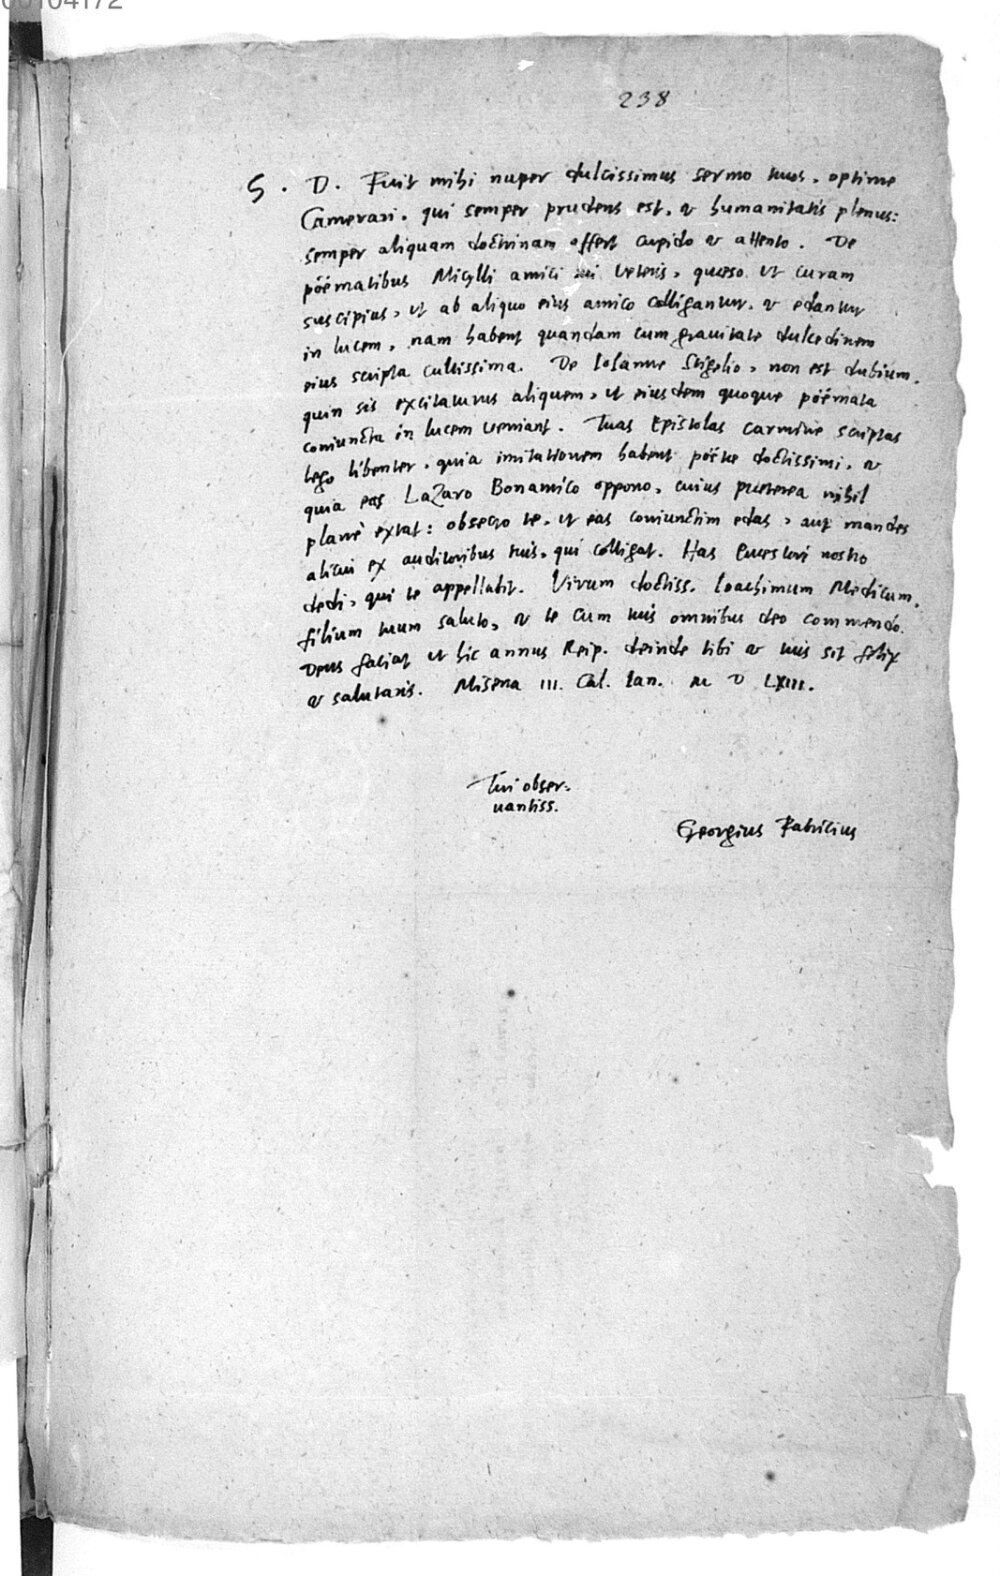 00104172
238
S. D. Fuit mihi nuper dulcissimus sermo tuus, optime
Camerari. qui semper prudens est, & humanitatis plenus:
semper aliquam doctrinam offert cupido & attento. De
poëmatibus Micylli amici mi veteris, quęso ut curam
suscipias, ut ab aliquo eius amico colligantur, & edantur
in lucem, nam habent quandam cum grauitate dulcedinem
eius scripta cultissima. De Iohanne Stigelio, non est dubium,
quin sis excitaturus aliquem, ut eiusdem quoque poëmata
coniuncta in lucem veniant. Tuas Epistolas carmine scriptas
lego libenter, quia imitationem habent poëtę doctissimi, &
quia eas Lazaro Bonamico oppono, cuius pręterea nihil
planè extat: obsecro te, ut eas coniunctim edas, aut mandes
alicui ex auditoribus tuis, qui colligat. Has nostro
dedi, qui te appellabit. Virum doctiss. Ioachimum Medicum,
filium tuum saluto, & te cum tuis omnibus deo commendo.
Deus faciat ut hic annus Reip. deinde tibi & tuis sit felix
& salutaris. Misena III. Cal. Ian. M D LXIII.
Tui obser-
uantiss.
Georgius Fabricius